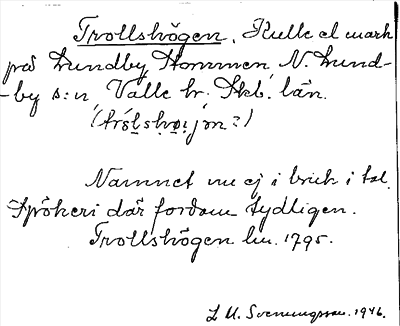 Trollshögen. Kulle el mark
på Lundby Hommen, N. Lund-
-by s:n, Valle hr. Skb. län.
(trɔ́lshø̣:jɔn?)
Namnet nu ej i bruk i tal.
Spökeri där fordom tydligen.
Trollshögen lm. 1795.
L M. Svenungsson. 1946.